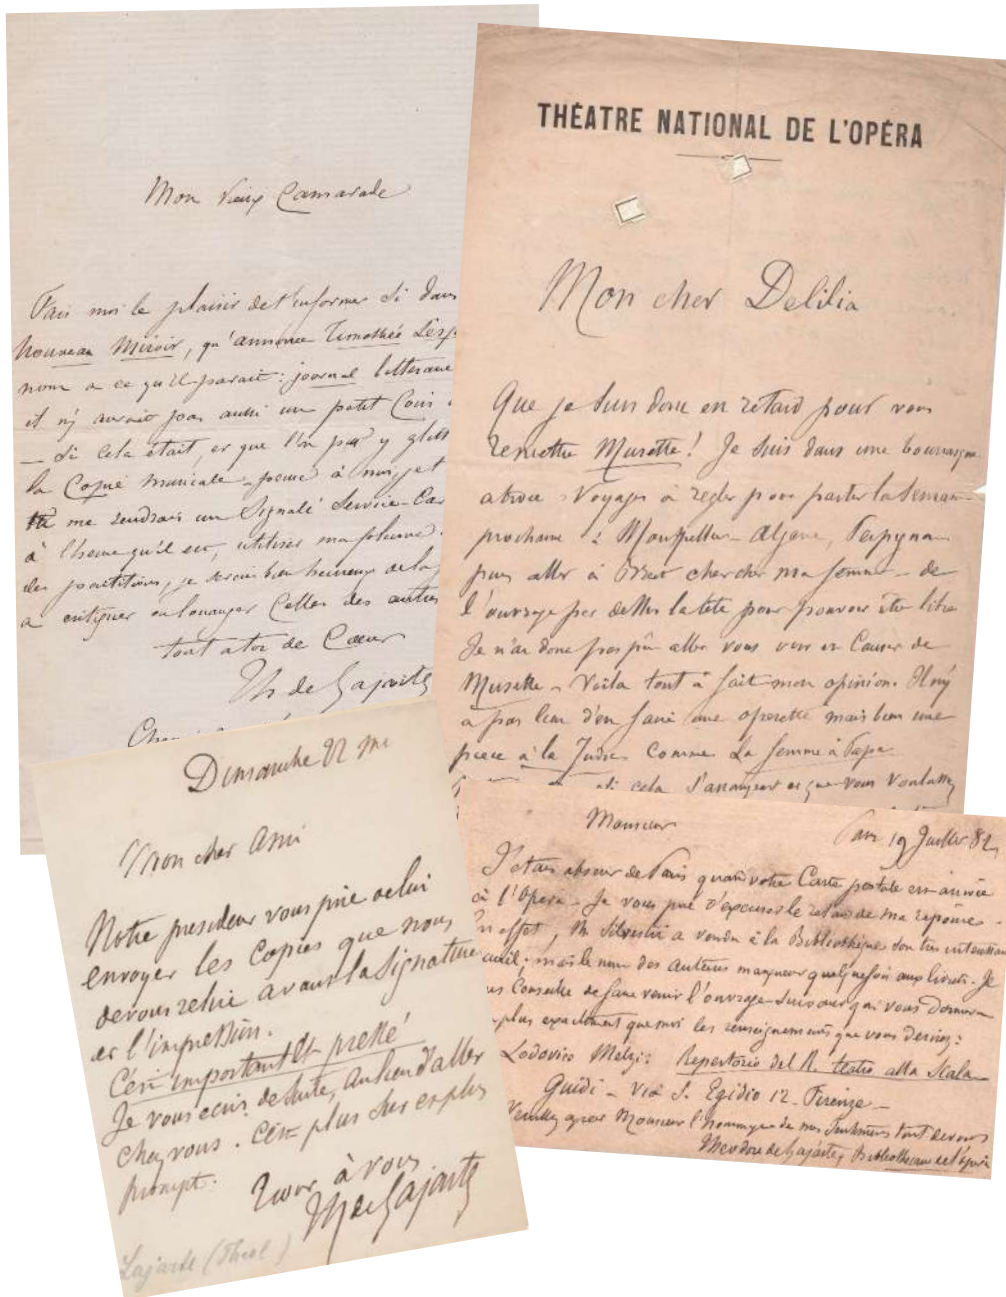 Mon vieux Camarade
Fais moi le plaisir de t'informer si dans
nouveau Miroir, qu'annonce Timothée
nom a ce qu'il parait: journal litteraire
il n'y aurait pas aussi un petit Coin
— Si cela était, et que l'on pût y
la Copie musicale
me rendrais un Signalé Service — Car
à l'heure qu'il est, utiliser ma plume
des partitions, je serais bien heureux de la
a critiquer ou louanger Celles des autres
tout a toi de Coeur
Th de Lajarte
THÉATRE NATIONAL DE L'OPÉRA
Mon cher Delilia
Que je suis donc en retard pour vous
remettre Musette! Je suis dans une bourrasque
atroce. Voyages à regler pour partir la semaine
prochaine: Montpellier
puis aller à Brest chercher ma femme — de
l'ouvrage par dessus la tête pour pouvoir être libre
Je n'ai donc pas pû aller vous voir et Causer de
Musette — Voila tout à fait mon opinion. Il n'y
a pas lieu d'en faire une operette mais bien une
piece à la Judic Comme La femme à Papa
si cela s'arrangeait et que vous Voulussiez
Dimanche 22 mi
Mon cher Ami
Notre president vous prie de lui
envoyer les Copies que nous
devons relire avant la Signature
et l'impression.
C'est important & pressé
Je vous ecris de suite, au lieu d'aller
chez vous. C'est plus sur et plus
prompt.
Tout à vous
Th de Lajarte
Lajarte (Theod)
Monsieur
Paris 19 Juillet 82
J'étais absent de Paris quand votre Carte postale est arrivée
à l'Opera — Je vous prie d'excuser le retard de ma reponse —
En effet, M Silvestri a vendu à la Bibliothèque son tres interessant
mais le nom des Auteurs manquent quelquefois aux livrets. Je
Conseille de faire venir l'ouvrage suivant qui vous donnera
plus exactement que moi les renseignements que vous desirez:
Lodovico Melzi: Repertorio del R. teatro alla Scala —
Guidi — Via S. Egidio 12 — Firenze —
Veuillez agréer Monsieur l'hommage de mes Sentiments tout devoués
Theodore de Lajarte, Bibliothecaire de l'Opéra